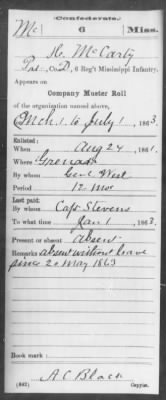 Confederate.
Mc 6 Miss.
H. McCarty
Pvt., Co. D, 6 Reg't Mississippi Infantry.
Appears on
Company Muster Roll
of the organization named above,
for Mch. 1 to July 1, 1863.
Enlisted:
When Aug 24, 1861.
Where Grenada
By whom Genl West
Period 12 Mos
Last paid:
By whom Capt Stevens
To what time Jan 1, 1863.
Present or absent absent
Remarks absent without leave
since 20 May 1863
Book mark:
(642) A C Black
Copyist.